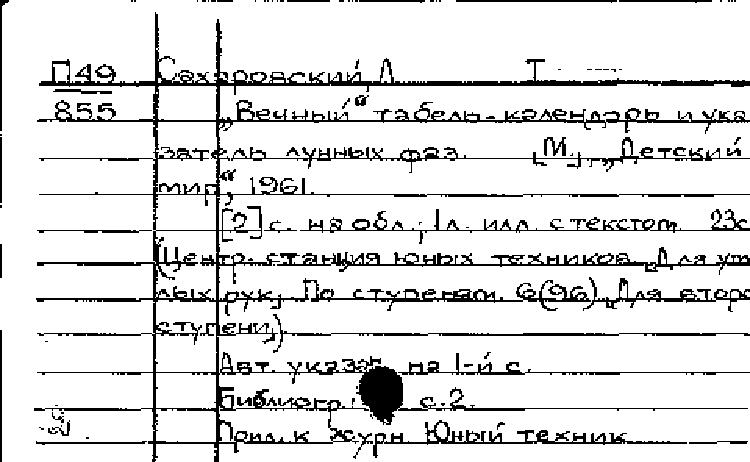 П49 Сахаровский, Л Т
855 „Вечный“ табель-календарь и ука
затель лунных фаз. [М.], „Детский
мир“, 1961.
[2] с. на обл.; 1 л. илл. с текстом. 23с
(Центр. станция юных техников. „Для ум
лых рук“, По ступеням. 6(96) „Для второ
ступени“)
Авт. указан на 1-й с.
Библиогр.: с. 2.
Прил. к журн Юный техник